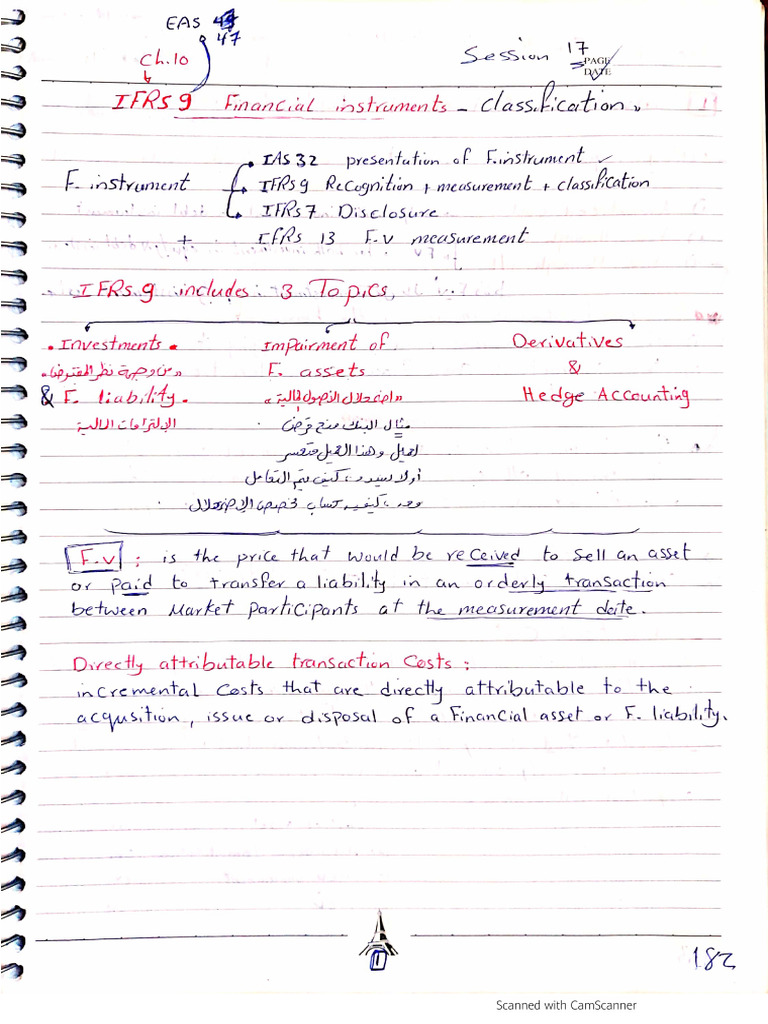 EAS
47
Ch.10
Session 17
PAGE
DATE
IFRS 9 Financial instruments - Classification
IAS 32 presentation of F.instrument
F. instrument
IFRS 9 Recognition + measurement + classification
IFRS 7 Disclosure
+ IFRS 13 F.V measurement
IFRS 9 includes 3 Topics
Investments
Impairment of
Derivatives
«من وجهة نظر المقترض»
F. assets
&
& F. liability
«اضمحلال الأصول المالية»
Hedge Accounting
الإلتزامات المالية
مثال البنك منح قرض
لعميل وهذا العميل متعسر
أو لا يسدد، كيف يتم التعامل
F.V : is the price that would be received to sell an asset
or paid to transfer a liability in an orderly transaction
between Market participants at the measurement date.
Directly attributable transaction Costs :
incremental Costs that are directly attributable to the
acqusition, issue or disposal of a Financial asset or F. liability.
1
182
Scanned with CamScanner